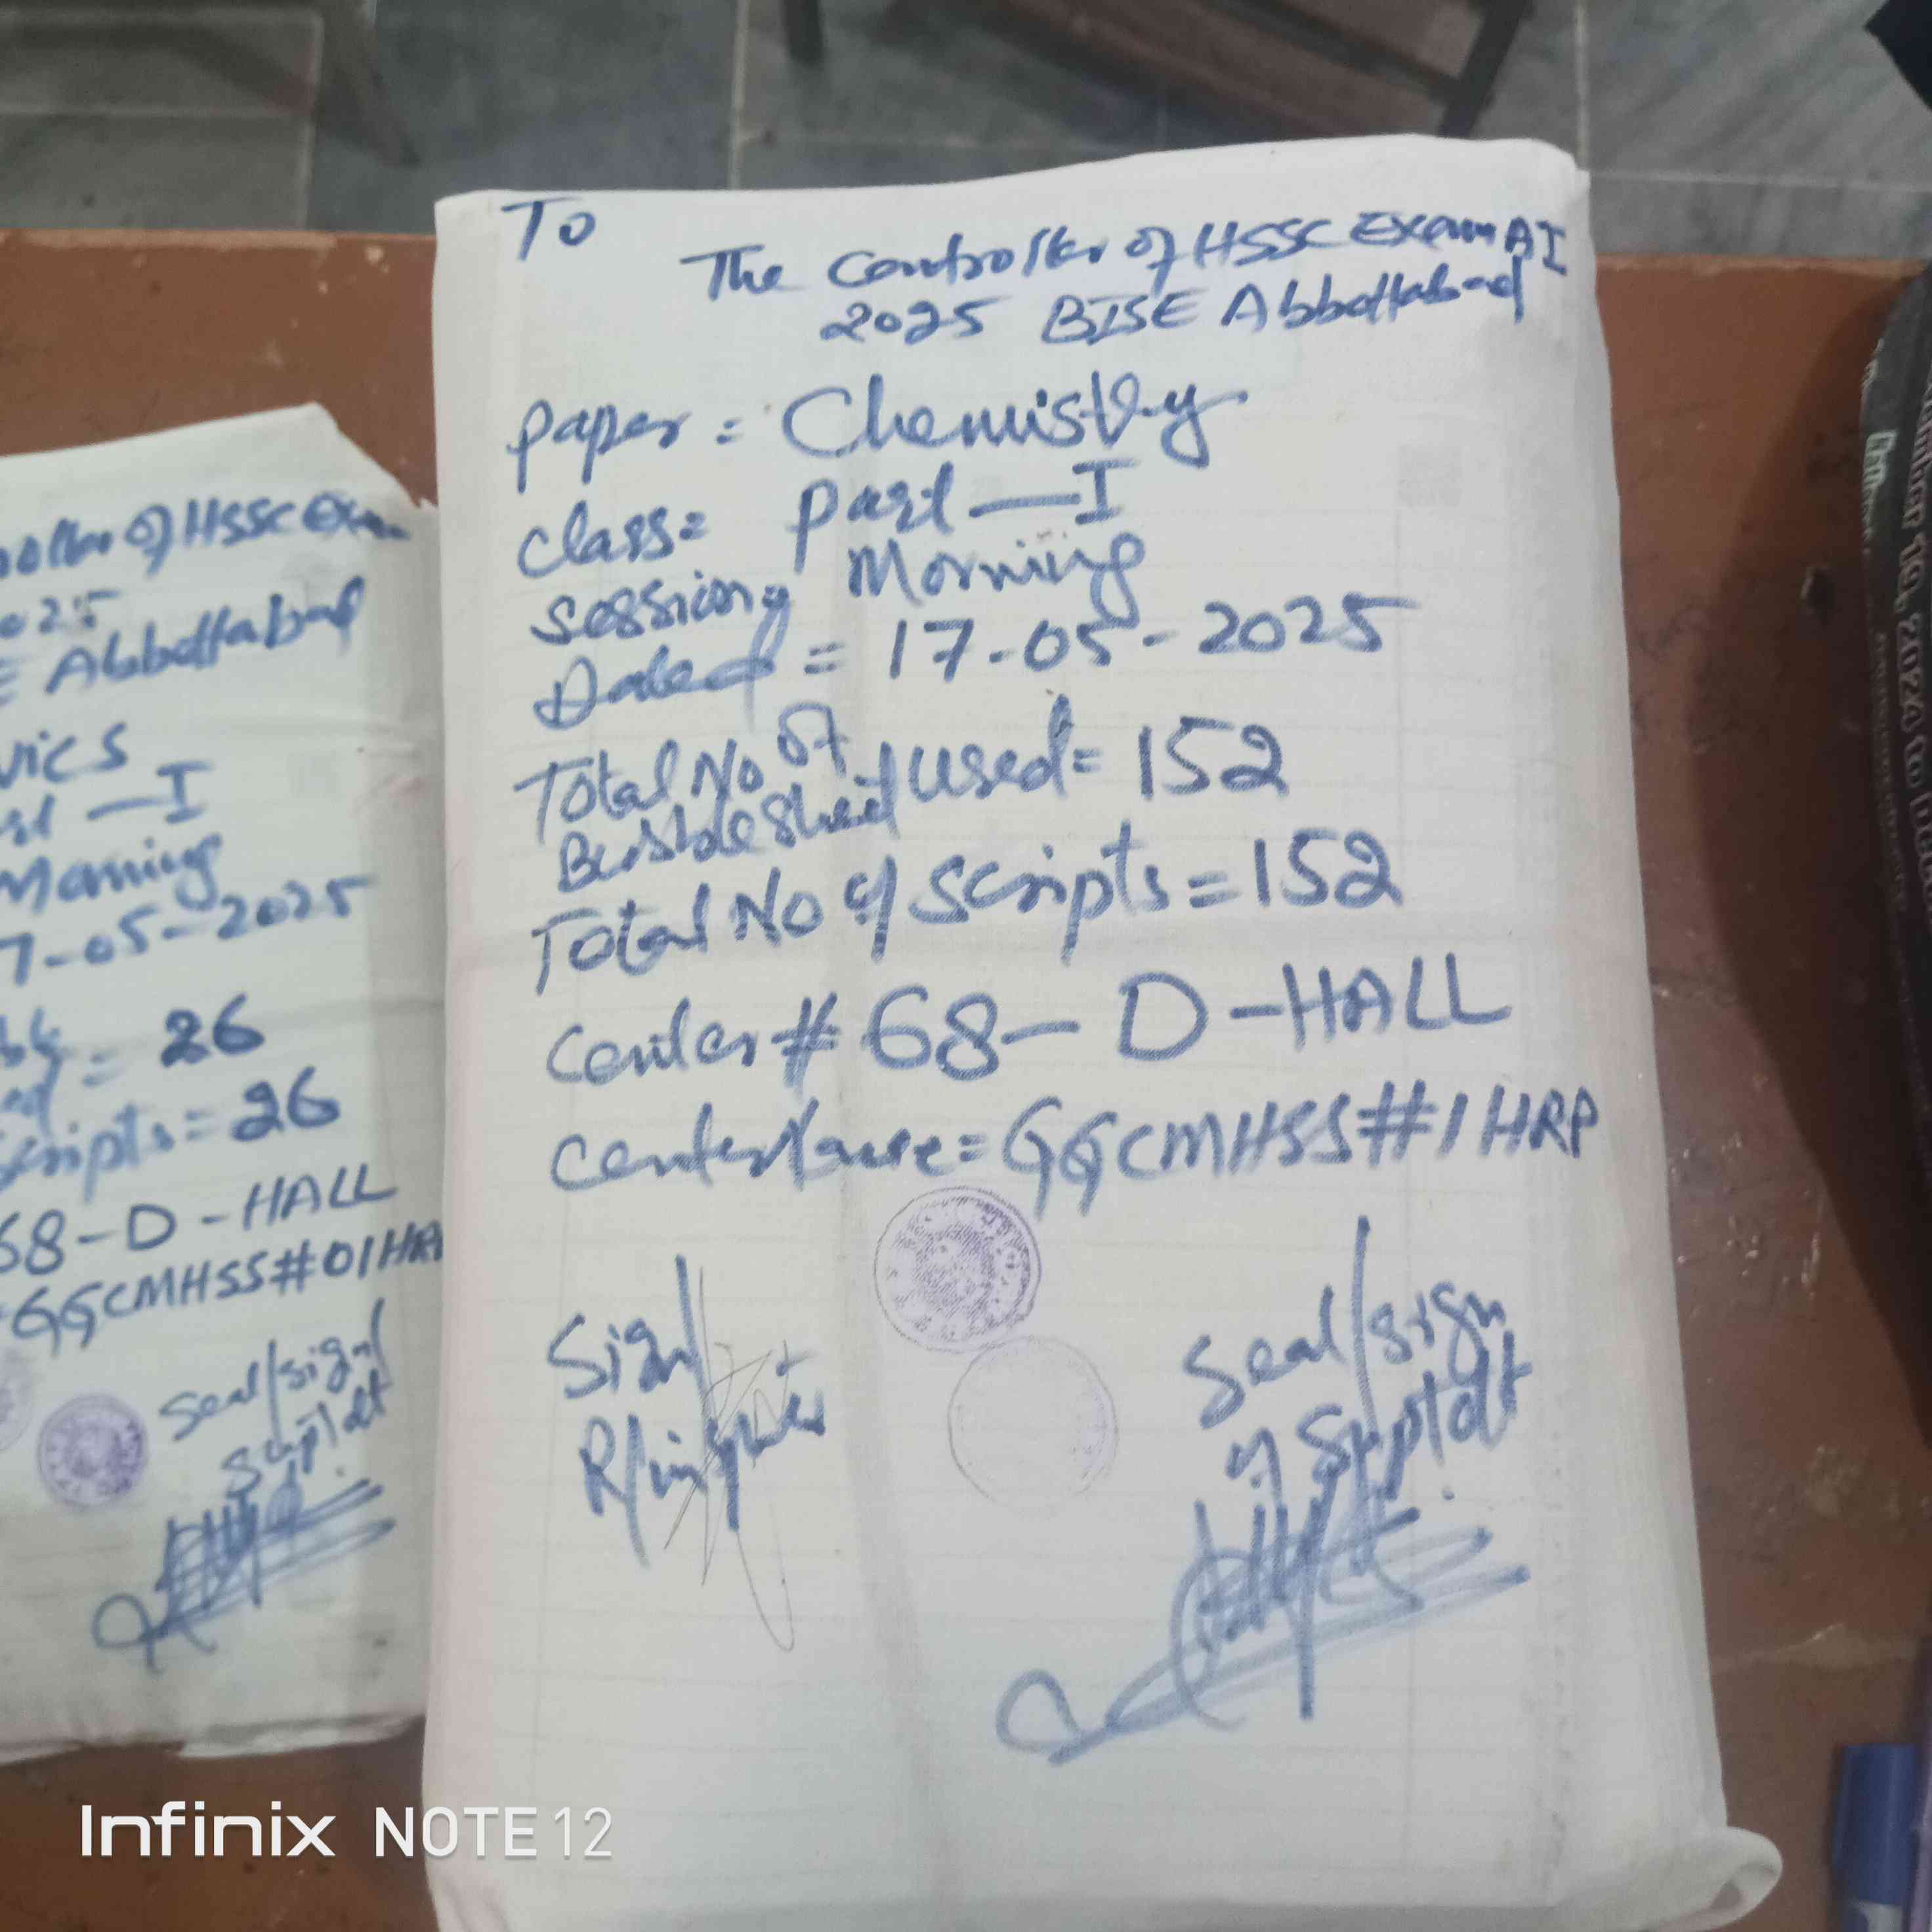 To
The Controller of HSSC Exam AI
2025 BISE Abbottabad
Paper = Chemistry
Class = Part — I
Session = Morning
Dated = 17-05-2025
Total No of
Bubble Sheet used = 152
Total No of Scripts = 152
Center # 68 - D - HALL
Center Name = GGCMHSS#1 HRP
Sign
R/
Seal/sign
of Suptdt
of HSSC Exam
Abbottabad
— I
Morning
7-05-2025
= 26
scripts = 26
68-D-HALL
GGCMHSS#01 HR
Seal/sign
Suptdt
Infinix NOTE 12